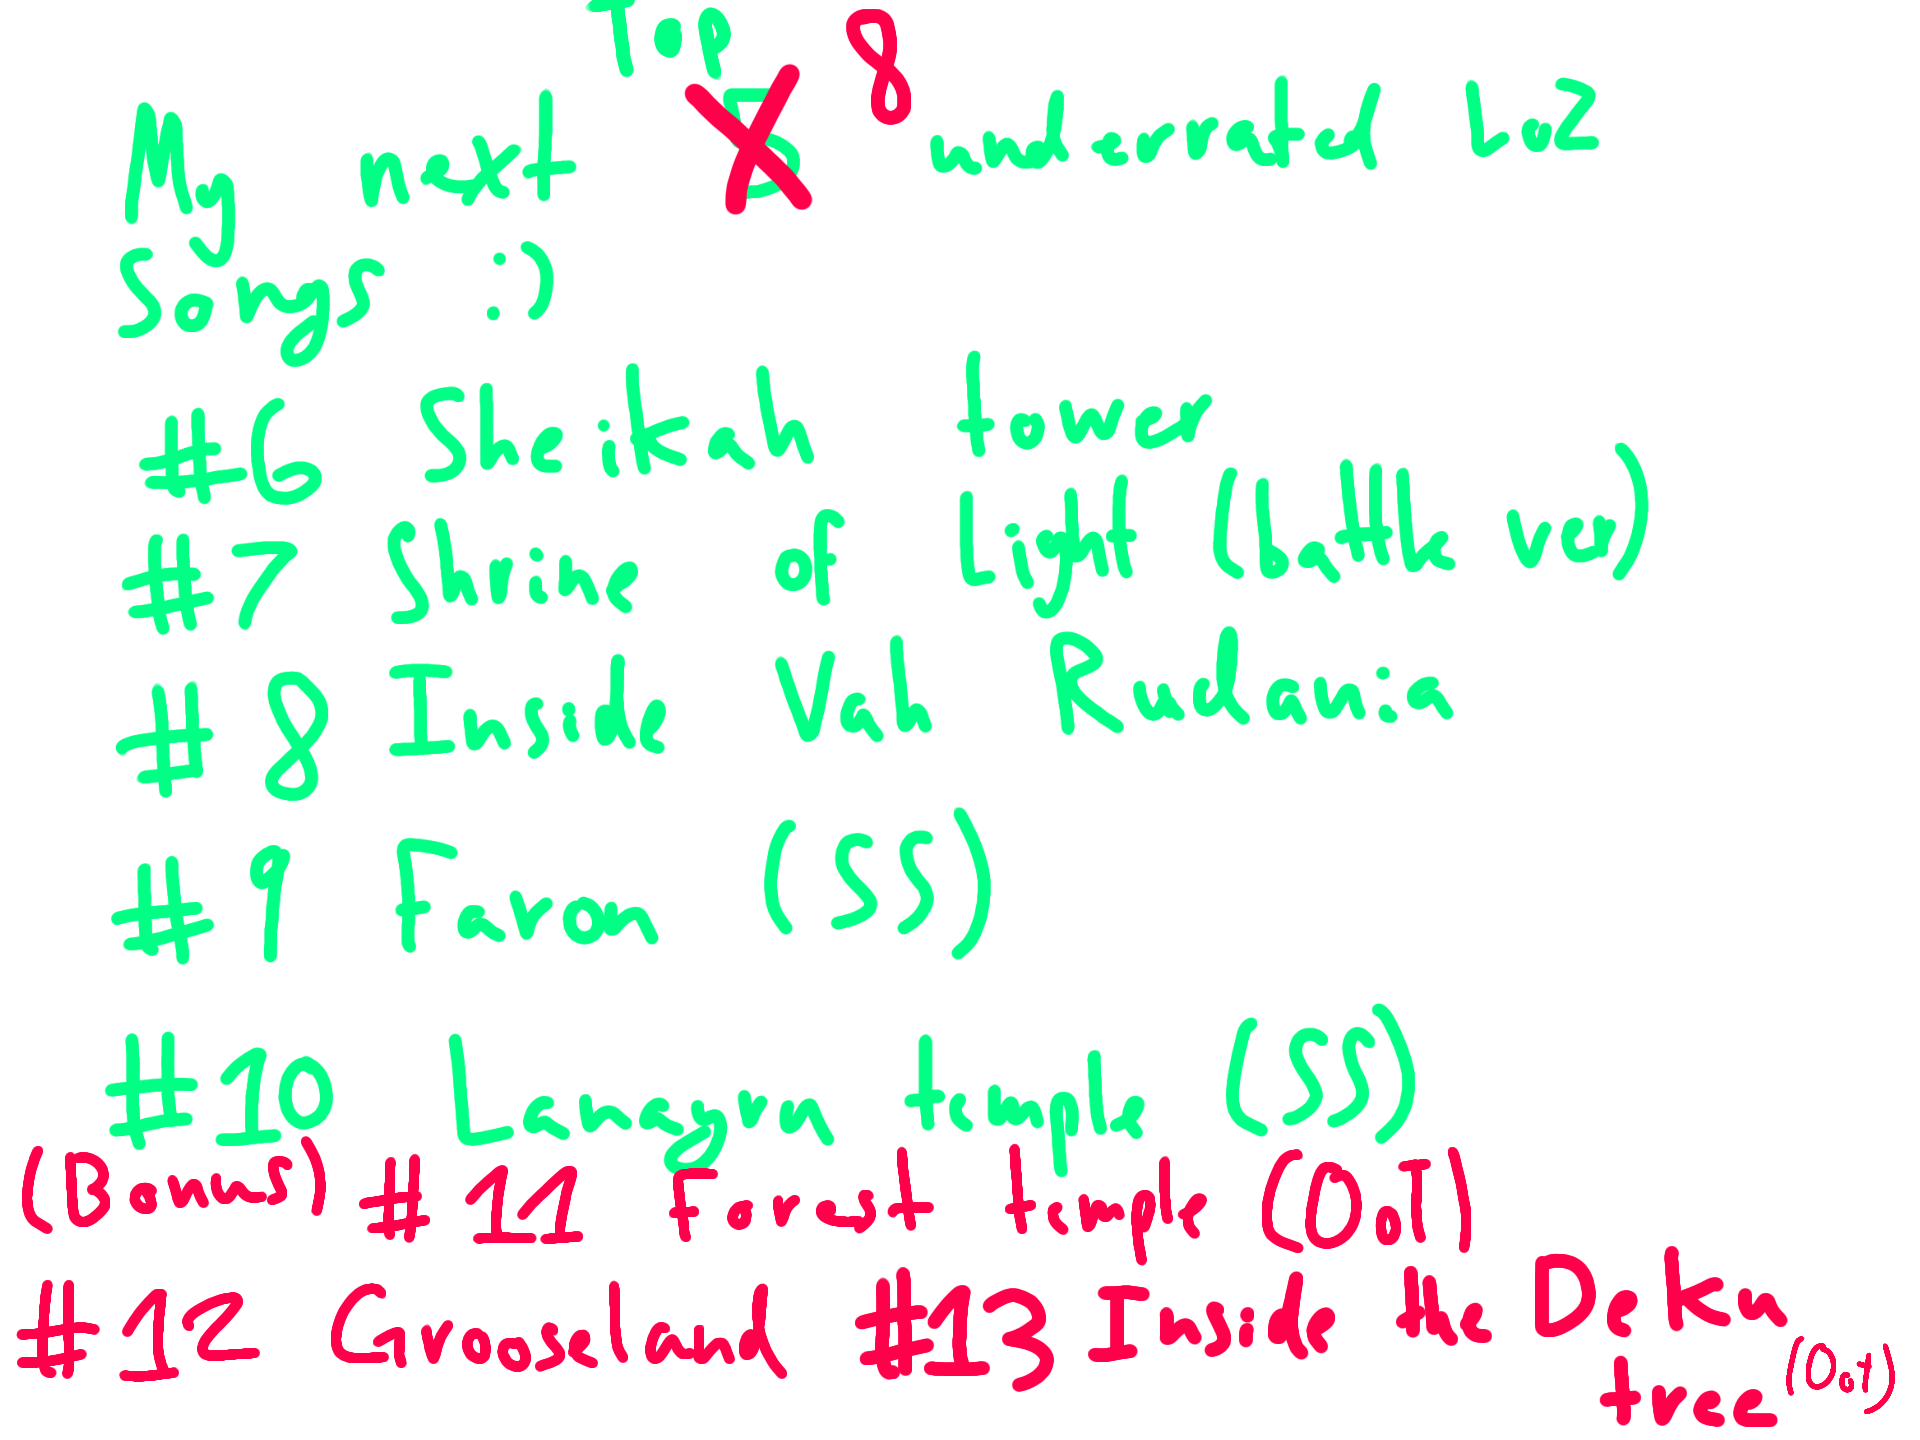 My next Top 5 8 underrated LoZ
Songs :)
#6 Sheikah tower
#7 Shrine of Light (battle ver)
#8 Inside Vah Rudania
#9 Faron (SS)
#10 Lanayru temple (SS)
(Bonus) #11 Forest temple (OoT)
#12 Grooseland #13 Inside the Deku
tree (Oot)